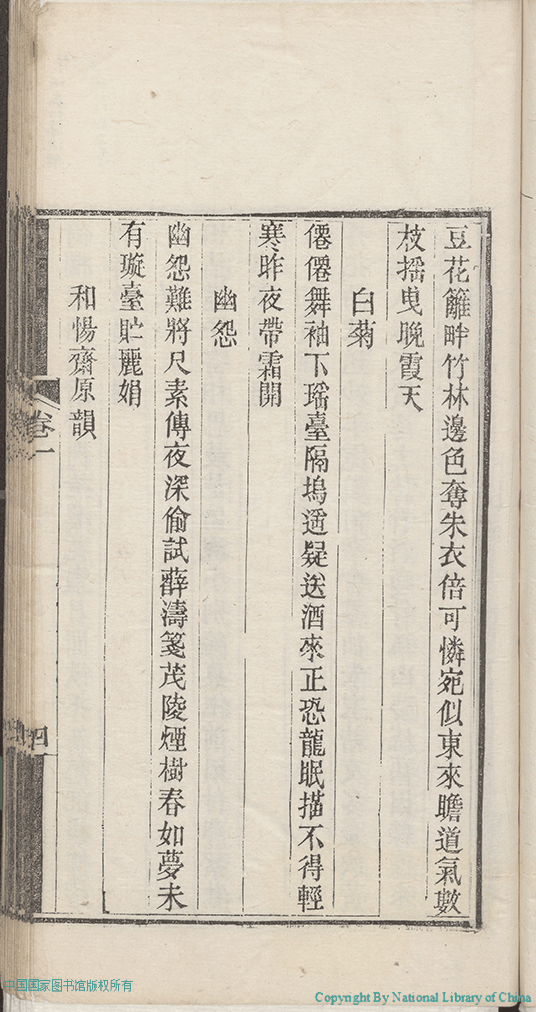 豆花籬畔竹林邊色奪朱衣倍可憐宛似東來瞻道氣數
枝搖曳晚霞天
白菊
僊僊舞袖下瑤臺隔塢遥疑送酒來正恐龍眠描不得輕
寒昨夜帶霜開
幽怨
幽怨難將尺素傳夜深偷試薛濤箋茂陵煙樹春如夢未
有璇臺貯麗娟
和惕齋原韻
卷一
四
中国国家图书馆版权所有
Copyright By National Library of China